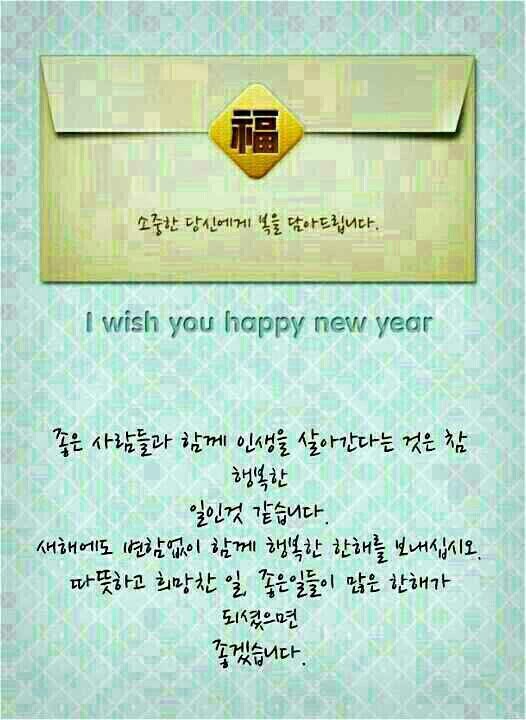 福
소중한 당신에게 복을 담아드립니다.
I wish you happy new year
좋은 사람들과 함께 인생을 살아간다는 것은 참
행복한
일인것 같습니다.
새해에도 변함없이 함께 행복한 한해를 보내십시오.
따뜻하고 희망찬 일, 좋은일들이 많은 한해가
되셨으면
좋겠습니다.